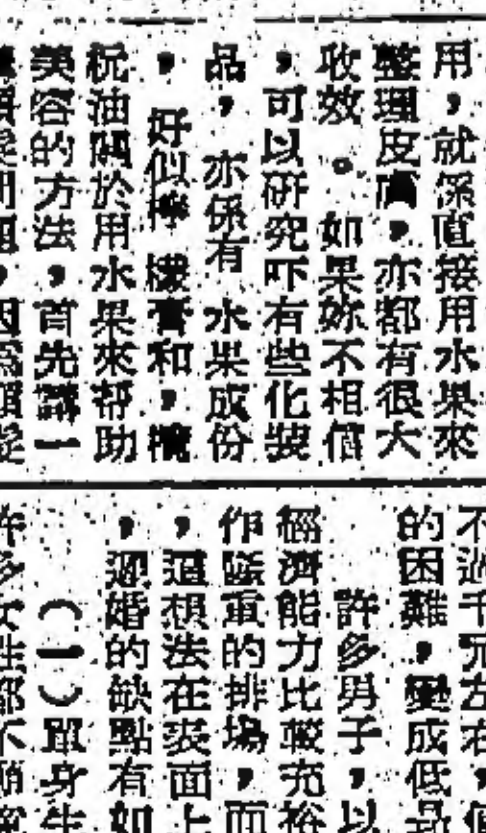 用，就係直接用水果來
整理皮膚，亦都有很大
收效。如果妳不相信
，可以研究吓有些化裝
品，亦係有水果成份
，好似檸檬膏和，欖
梳油關於用水果來帮助
美容的方法，首先講一
不過千元左右，
的困難，變成低
許多男子，以
經濟能力比較充裕
作隆重的排場，而
，這想法在表面上
，遲婚的缺點有如
（一）單身生
許多女性都不願